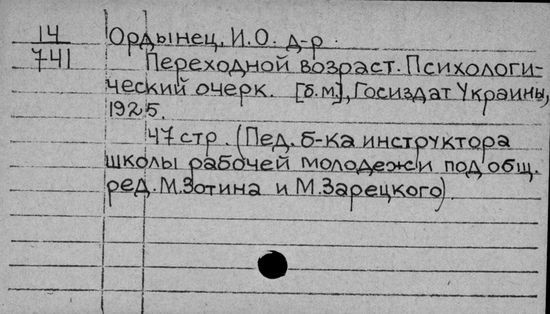 14 Ордынец, И.О. д-р.
741 Переходной возраст. Психологи-
ческий очерк. [б.м.], Госиздат Украины,
1925.
47 стр. (Пед. б-ка инструктора
школы рабочей молодежи под общ.
ред. М.Зотина и М.Зарецкого).